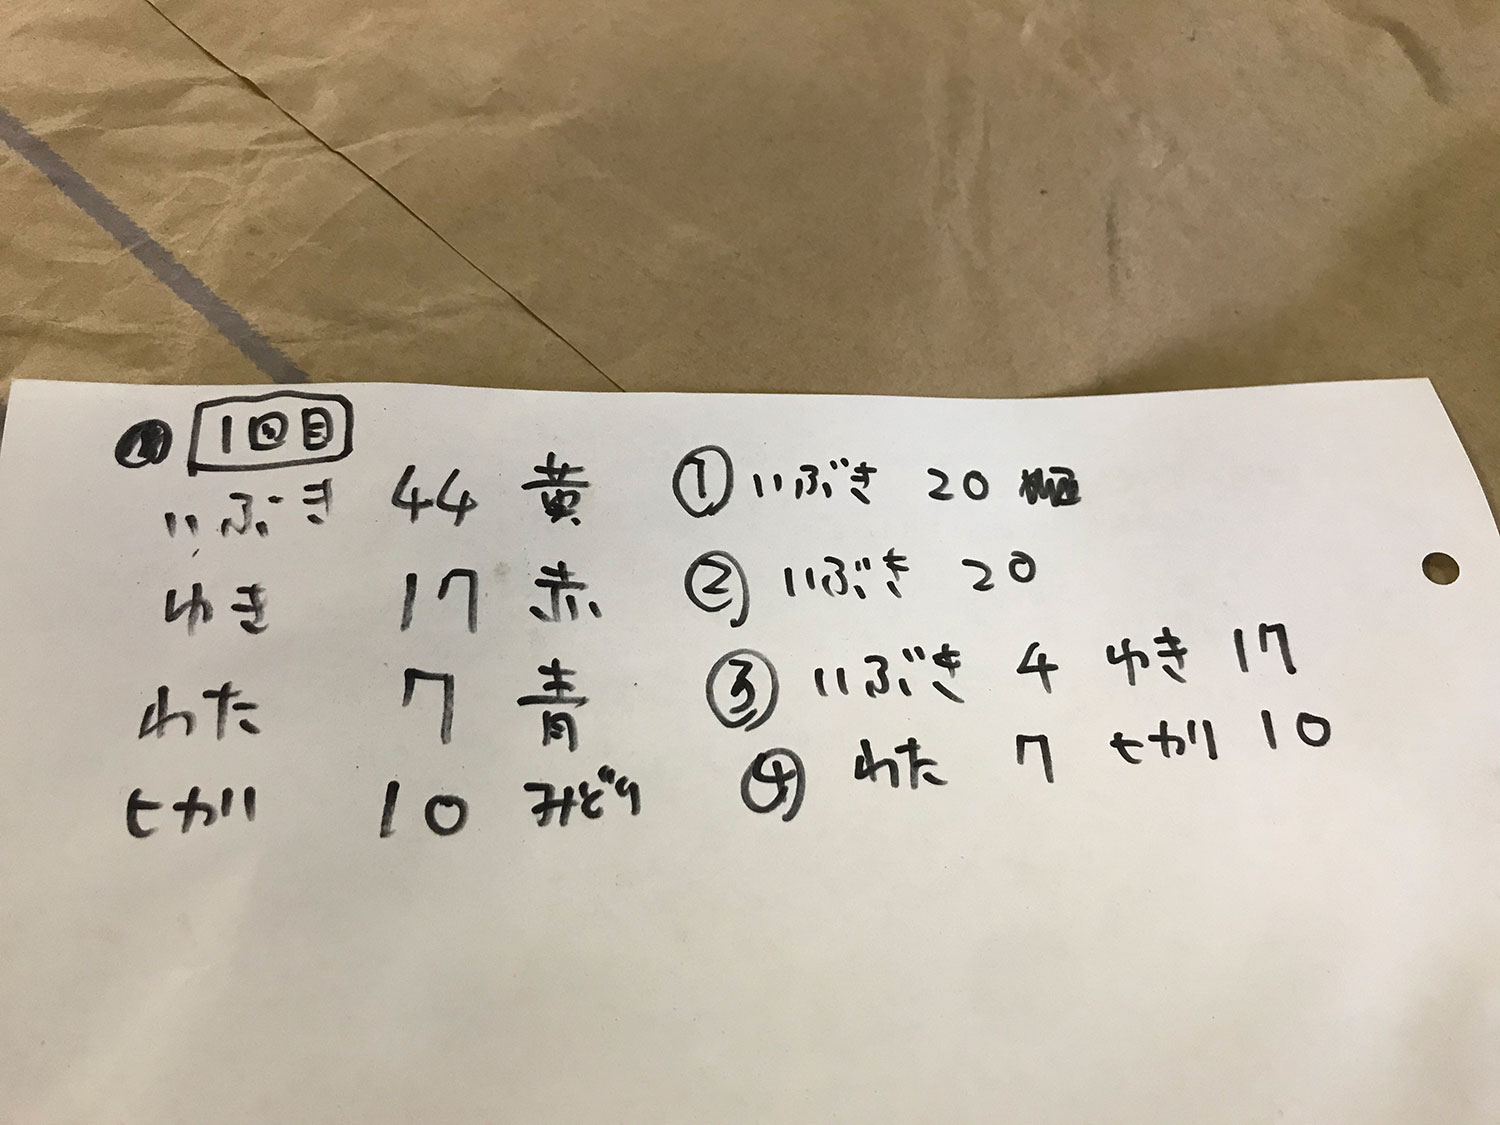 1回目
いぶき 44 黄
ゆき 17 赤
わた 7 青
ヒカリ 10 みどり
① いぶき 20
② いぶき 20
③ いぶき 4 ゆき 17
④ わた 7 ヒカリ 10